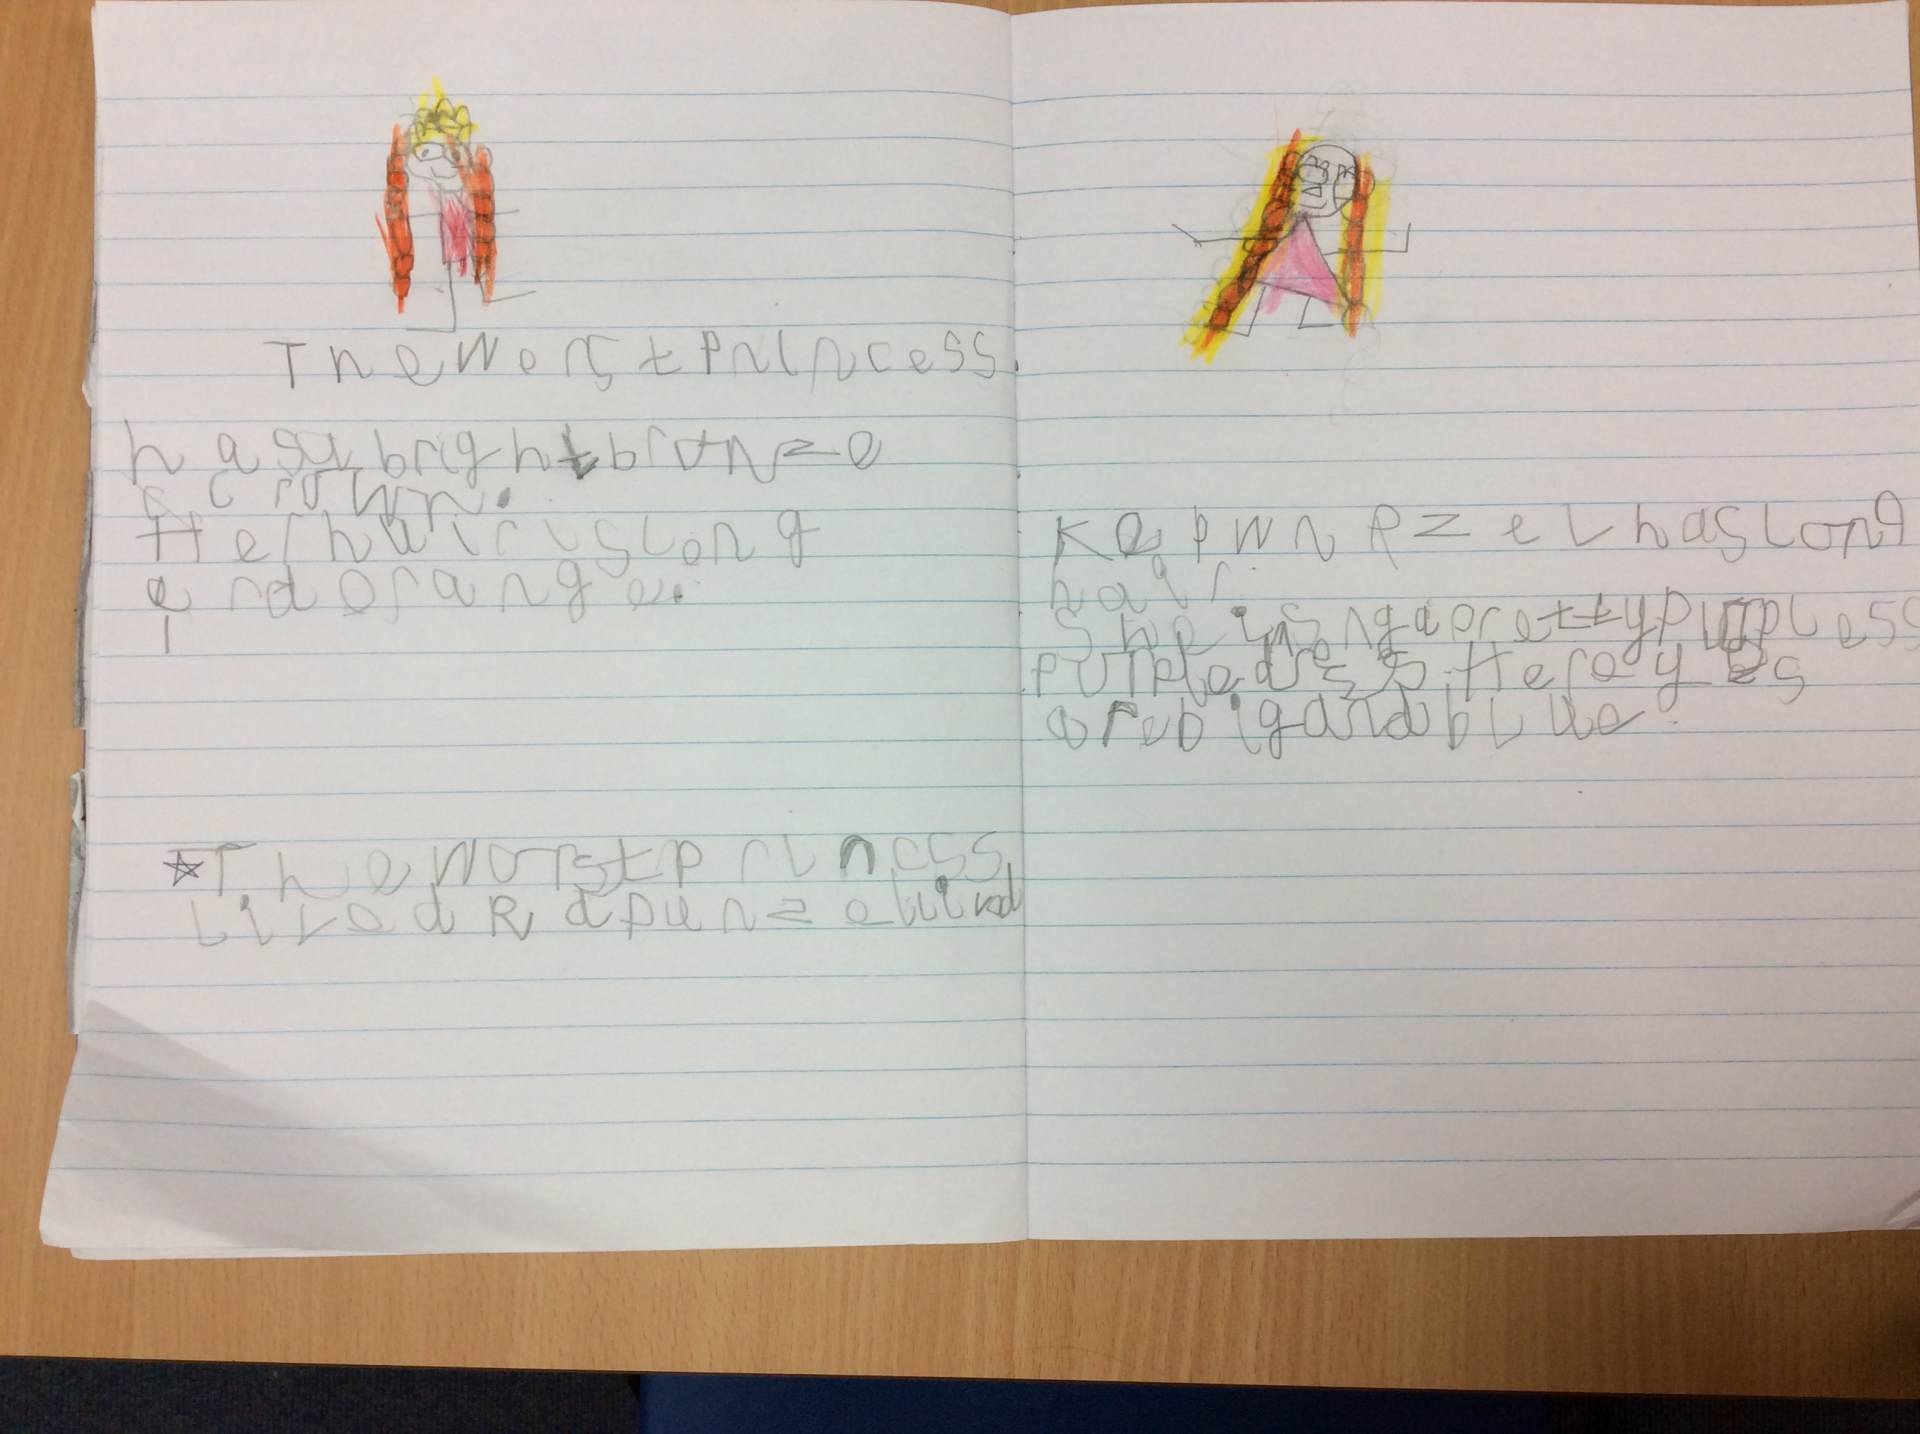 The Worst Princess
has a bright bronze
crown.
Her hair is long
and orange.
★ The Worst princss
lived Rapunzel
Rapwnpzel has long
hair.
She is a pretty
purple dress. Her eyes
are big and blue.